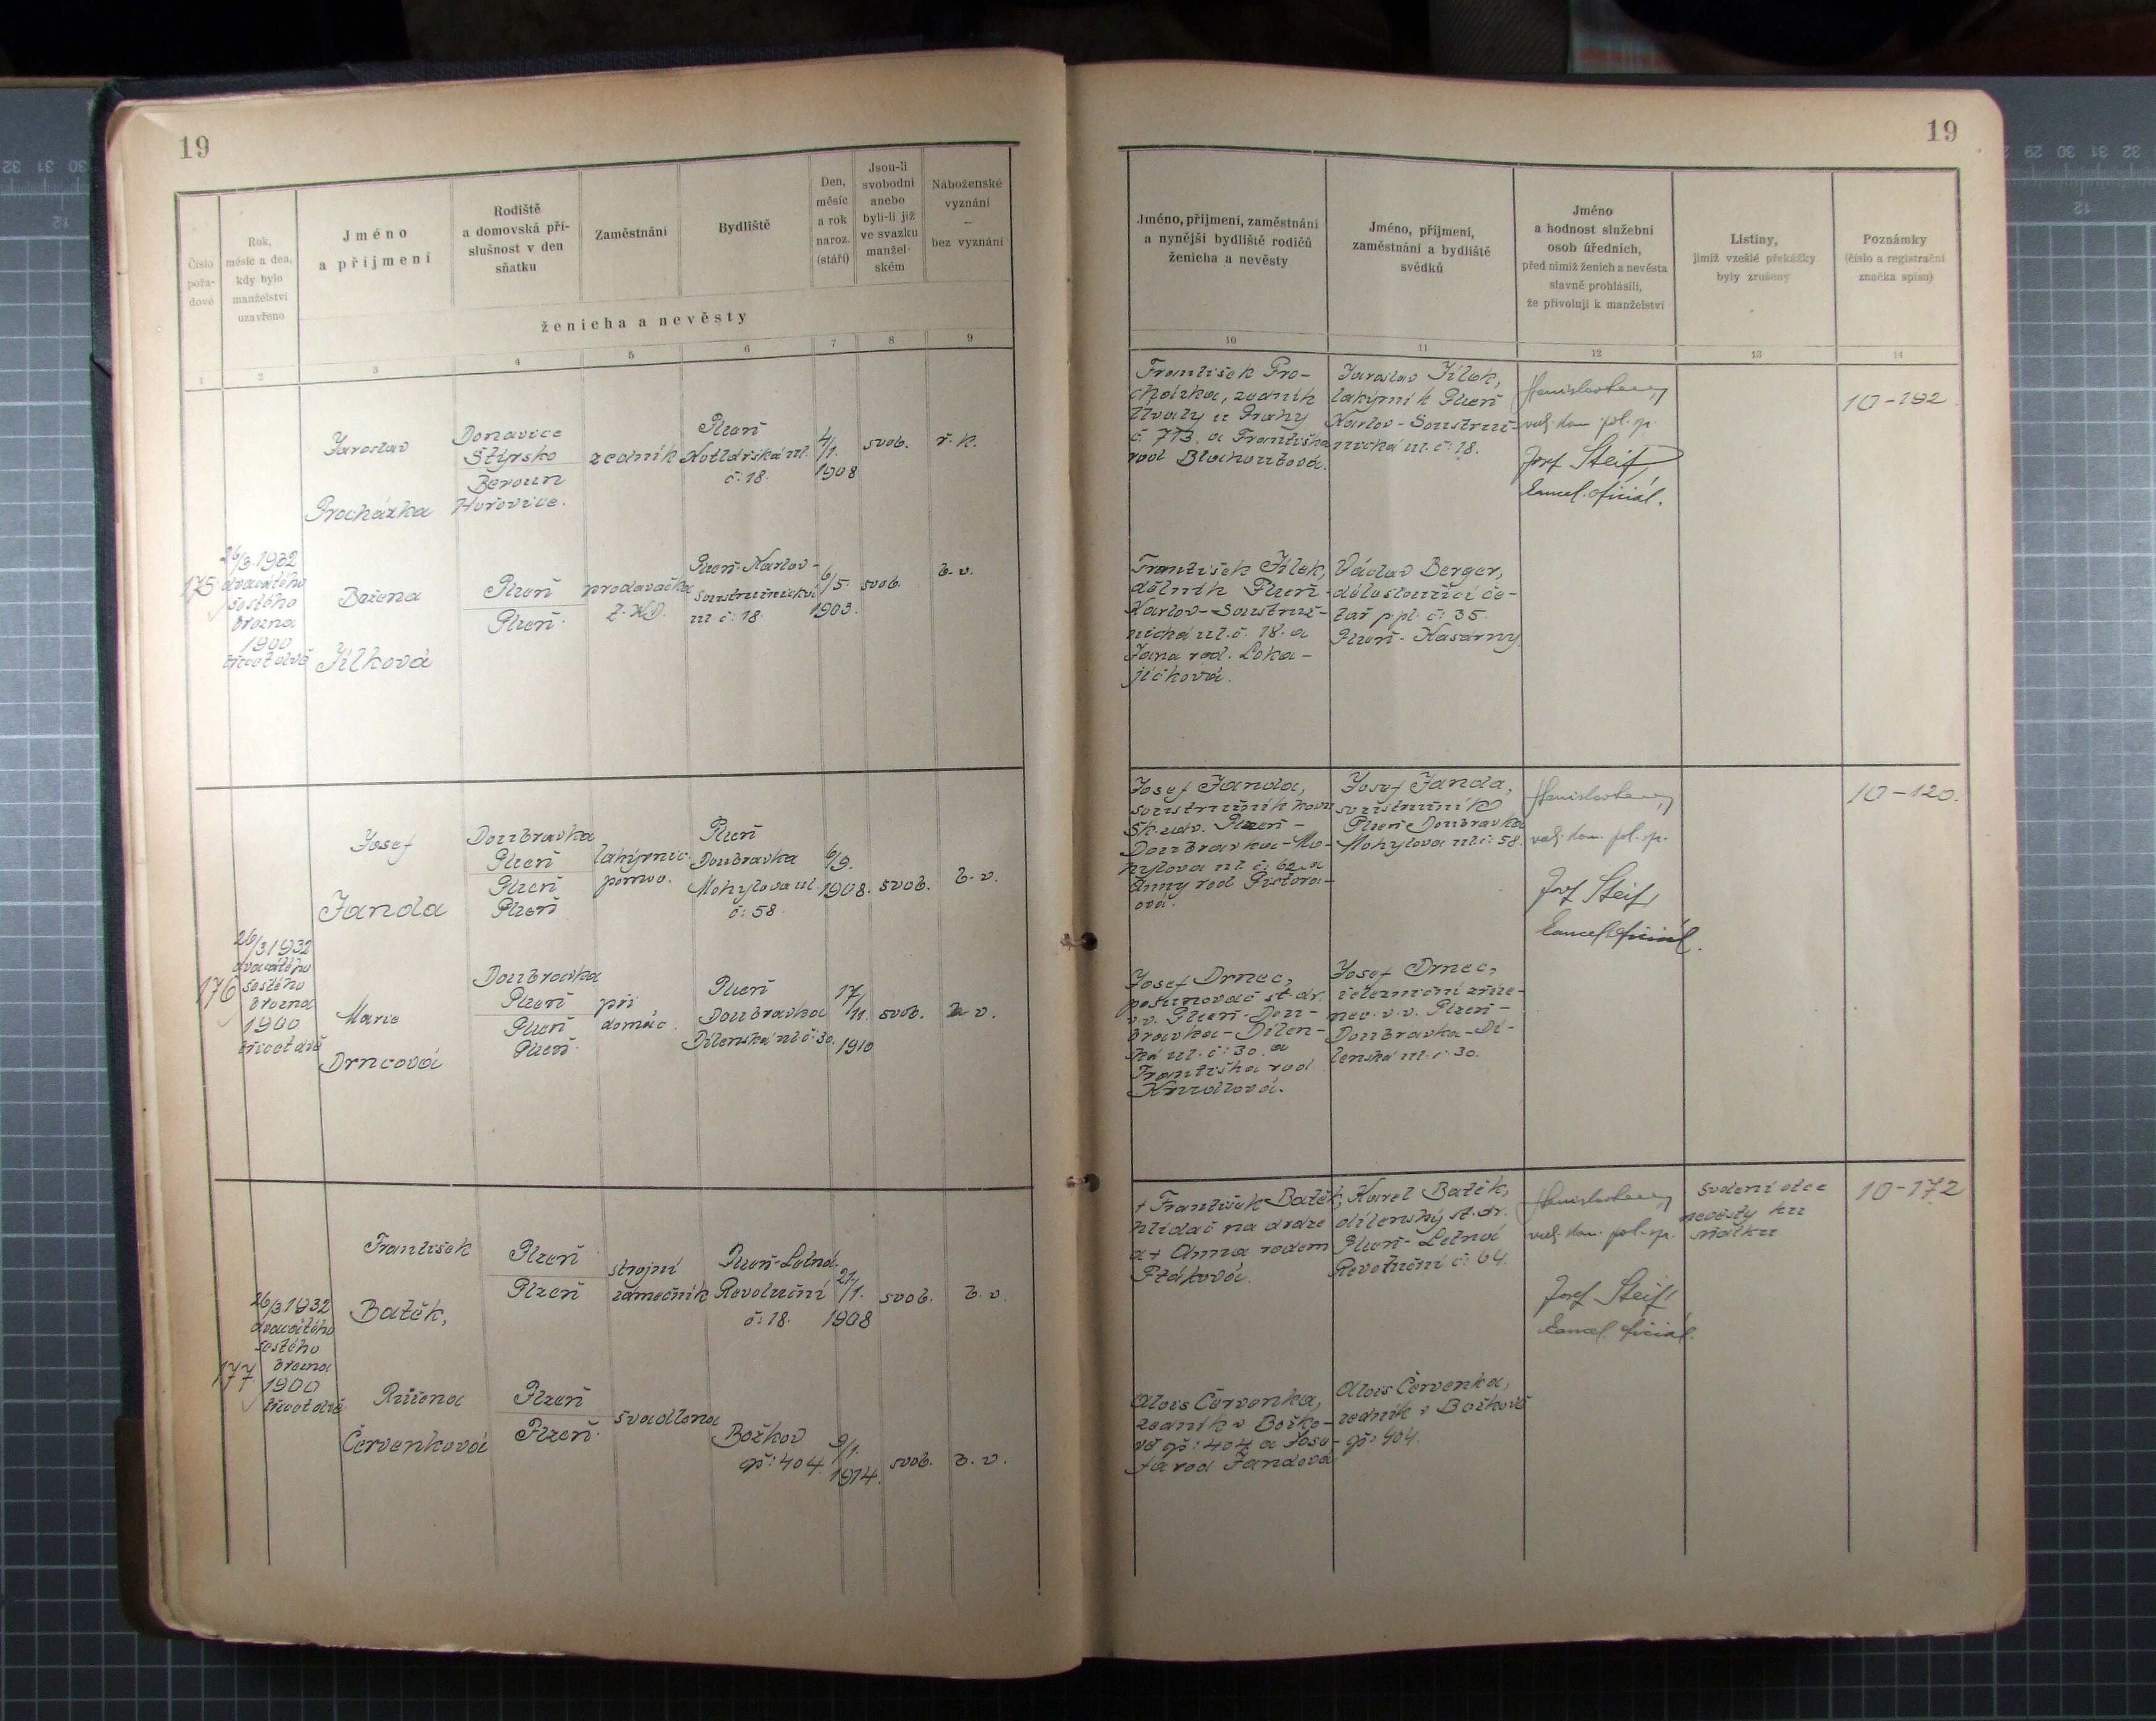 19
19
Číslo pořadové
Rok, měsíc a den, kdy bylo manželství uzavřeno
Jméno a příjmení
Rodiště a domovská příslušnost v den sňatku
Zaměstnání
Bydliště
Den, měsíc a rok naroz. (stáří)
Jsou-li svobodni anebo byli-li již ve svazku manželském
Náboženské vyznání — bez vyznání
ženicha a nevěsty
Jméno, příjmení, zaměstnání a nynější bydliště rodičů ženicha a nevěsty
Jméno, příjmení, zaměstnání a bydliště svědků
Jméno a hodnost služební osob úředních, před nimiž ženich a nevěsta slavně prohlásili, že přivolují k manželství
Listiny, jimiž vzešlé překážky byly zrušeny
Poznámky (číslo a registrační značka spisu)
1 2 3 4 5 6 7 8 9 10 11 12 13 14
Jaroslav
Procházka
Donavice
Štýrsko
Beroun
Hořovice.
zedník
Plzeň
Kotlářská ul.
č: 18.
4/1.
1908
svob.
ř. k.
František Pro-
cházka, zedník
Úvaly u Prahy
č 713. a Františka
rod Blahoutová.
Jaroslav Jílek,
lakýrník Plzeň
Karlov-Soustruž-
nická ul. č: 18.
Josef Steif,
kancel. oficiál.
10-192.
175
26/3.1932
dvacátého
šestého
března
1900
třicet dvě
Božena
Jílková
Plzeň
Plzeň.
prodavačka
Ž.K.D.
Plzeň-Karlov-
Soustružnická
ul. č: 18.
6/5.
1903.
svob.
b. v.
František Jílek,
dělník Plzeň-
Karlov-Soustruž-
nická ul. č. 18. a
Jana rod. Loka-
jíčková.
Václav Berger,
délesloužící če-
tař p. pl. č: 35.
Plzeň-Kasárny
Josef
Janda
Doubravka
Plzeň
Plzeň
Plzeň
lakýrnic.
pomoc.
Plzeň
Doubravka
Mohylova ul.
č: 58.
6/9.
1908.
svob.
b. v.
Josef Janda,
soustružník kovu
Šk. záv. Plzeň-
Doubravka-Mo-
hylova ul. č: 62. a
Anny rod
ová.
Josef Janda,
soustružník
Plzeň-Doubravka
Mohylova ul. č: 58.
Josef Steif,
kancel. oficiál.
10-120.
176
26/3 1932
dvacátého
šestého
března
1900
třicet dvě
Marie
Drncová
Doubravka
Plzeň
Plzeň
Plzeň.
při
domác.
Plzeň
Doubravka
Dílenská ul č: 30.
17/11.
1910
svob.
b. v.
Josef Drnec,
posunovač st. dr.
v. v. Plzeň-Dou-
bravka-Dílen-
ská ul. č: 30. a
Františka rod
Knedlová.
Josef Drnec,
železniční zříze-
nec. v. v. Plzeň-
Doubravka-Dí-
lenská ul. č. 30.
František
Batěk,
Plzeň
Plzeň
strojní
zámečník
Plzeň-Letná.
Revoluční
č: 18.
21/1.
1908
svob.
b. v.
† František Batěk,
hlídač na dráze
a † Anna rodem
Ptáková.
Karel Batěk,
dílenský st. dr.
Plzeň-Letná
Revoluční č: 64.
Josef Steif,
kancel. oficiál.
Svolení otce
nevěsty ku
sňatku
10-172
177
26/3 1932
dvacátého
šestého
března
1900
třicet dvě
Růžena
Červenková
Plzeň
Plzeň.
švadlena
Božkov
čp: 404.
9/1.
1914.
svob.
b. v.
Alois Červenka,
zedník v Božko-
vě čp: 404 a Jose-
fa rod Jandová
Alois Červenka,
zedník v Božkově
čp: 404.